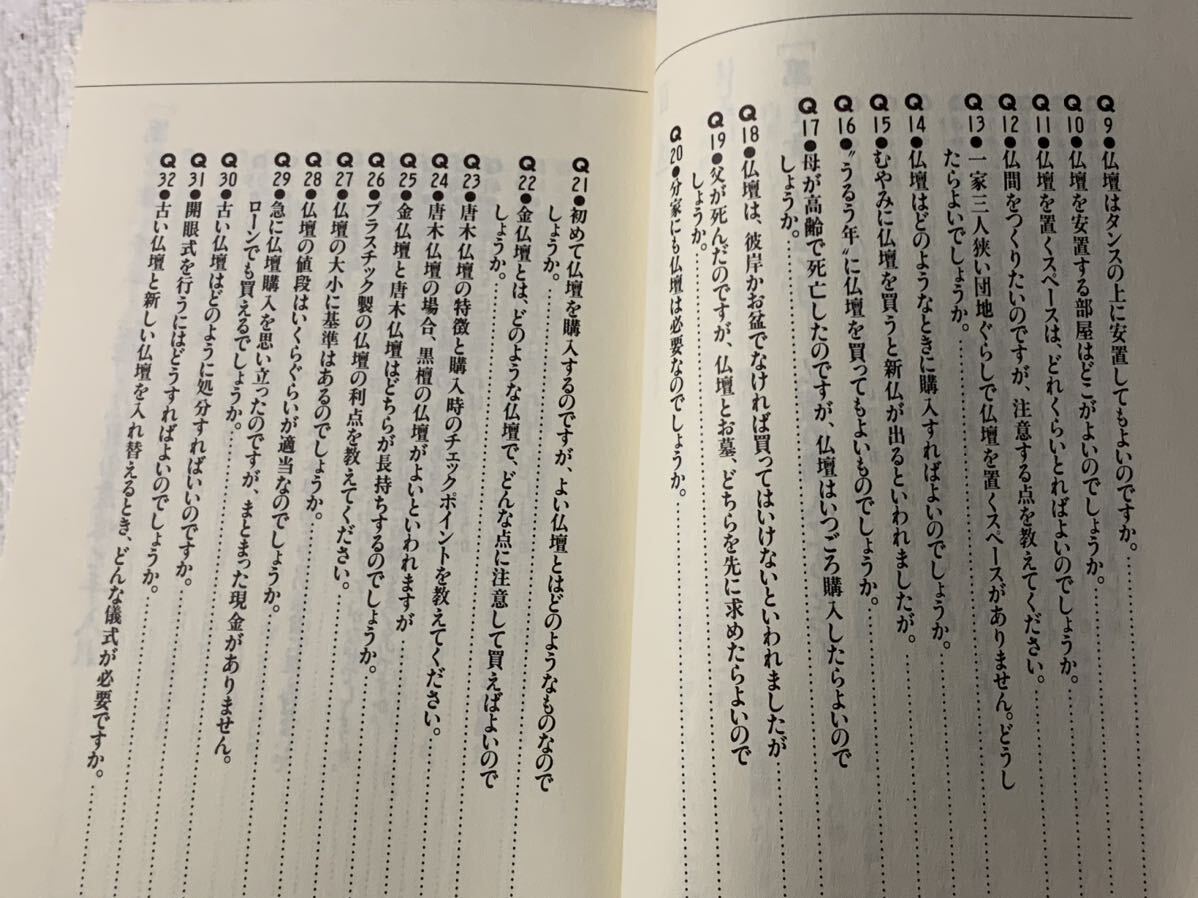 Q9●仏壇はタンスの上に安置してもよいのですか。
Q10●仏壇を安置する部屋はどこがよいのでしょうか。
Q11●仏壇を置くスペースは、どれくらいとればよいのでしょうか。
Q12●仏間をつくりたいのですが、注意する点を教えてください。
Q13●一家三人狭い団地ぐらしで仏壇を置くスペースがありません。どうし
たらよいでしょうか。
Q14●仏壇はどのようなときに購入すればよいのでしょうか。
Q15●むやみに仏壇を買うと新仏が出るといわれましたが。
Q16●“うるう年”に仏壇を買ってもよいものでしょうか。
Q17●母が高齢で死亡したのですが、仏壇はいつごろ購入したらよいので
しょうか。
Q18●仏壇は、彼岸かお盆でなければ買ってはいけないといわれましたが
Q19●父が死んだのですが、仏壇とお墓、どちらを先に求めたらよいので
しょうか。
Q20●分家にも仏壇は必要なのでしょうか。
Q21●初めて仏壇を購入するのですが、よい仏壇とはどのようなものなので
しょうか。
Q22●金仏壇とは、どのような仏壇で、どんな点に注意して買えばよいので
しょうか。
Q23●唐木仏壇の特徴と購入時のチェックポイントを教えてください。
Q24●唐木仏壇の場合、黒檀の仏壇がよいといわれますが
Q25●金仏壇と唐木仏壇はどちらが長持ちするのでしょうか。
Q26●プラスチック製の仏壇の利点を教えてください。
Q27●仏壇の大小に基準はあるのでしょうか。
Q28●仏壇の値段はいくらぐらいが適当なのでしょうか。
Q29●急に仏壇購入を思い立ったのですが、まとまった現金がありません。
ローンでも買えるでしょうか。
Q30●古い仏壇はどのように処分すればいいのですか。
Q31●開眼式を行うにはどうすればよいのでしょうか。
Q32●古い仏壇と新しい仏壇を入れ替えるとき、どんな儀式が必要ですか。